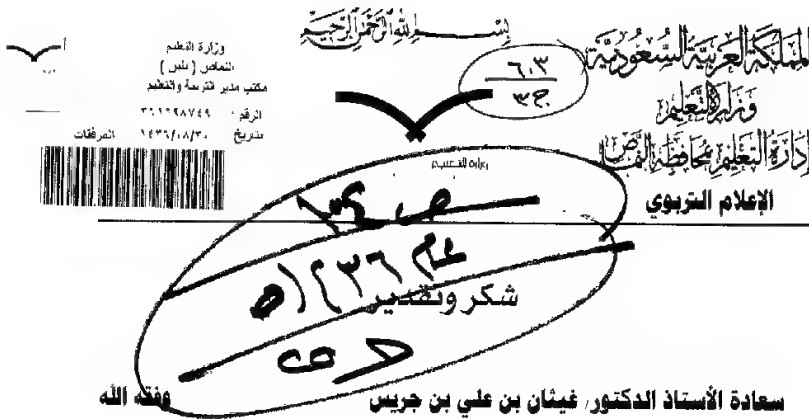 بسم الله الرحمن الرحيم
المملكة العربية السعودية
وزارة التعليم
إدارة التعليم بمحافظة النماص
الإعلام التربوي
٦٠٣
ج٣
وزارة التعليم
النماص (بنين)
مكتب مدير التربية والتعليم
الرقم ٣٦١٩٩٨٧٤٩
بتاريخ ١٤٣٦/٠٨/٣٠ المرفقات
وزارة التعليم
عام ١٤٣٦هـ
شكر وتقدير
سعادة الأستاذ الدكتور/ غيثان بن علي بن جريس وفقه الله